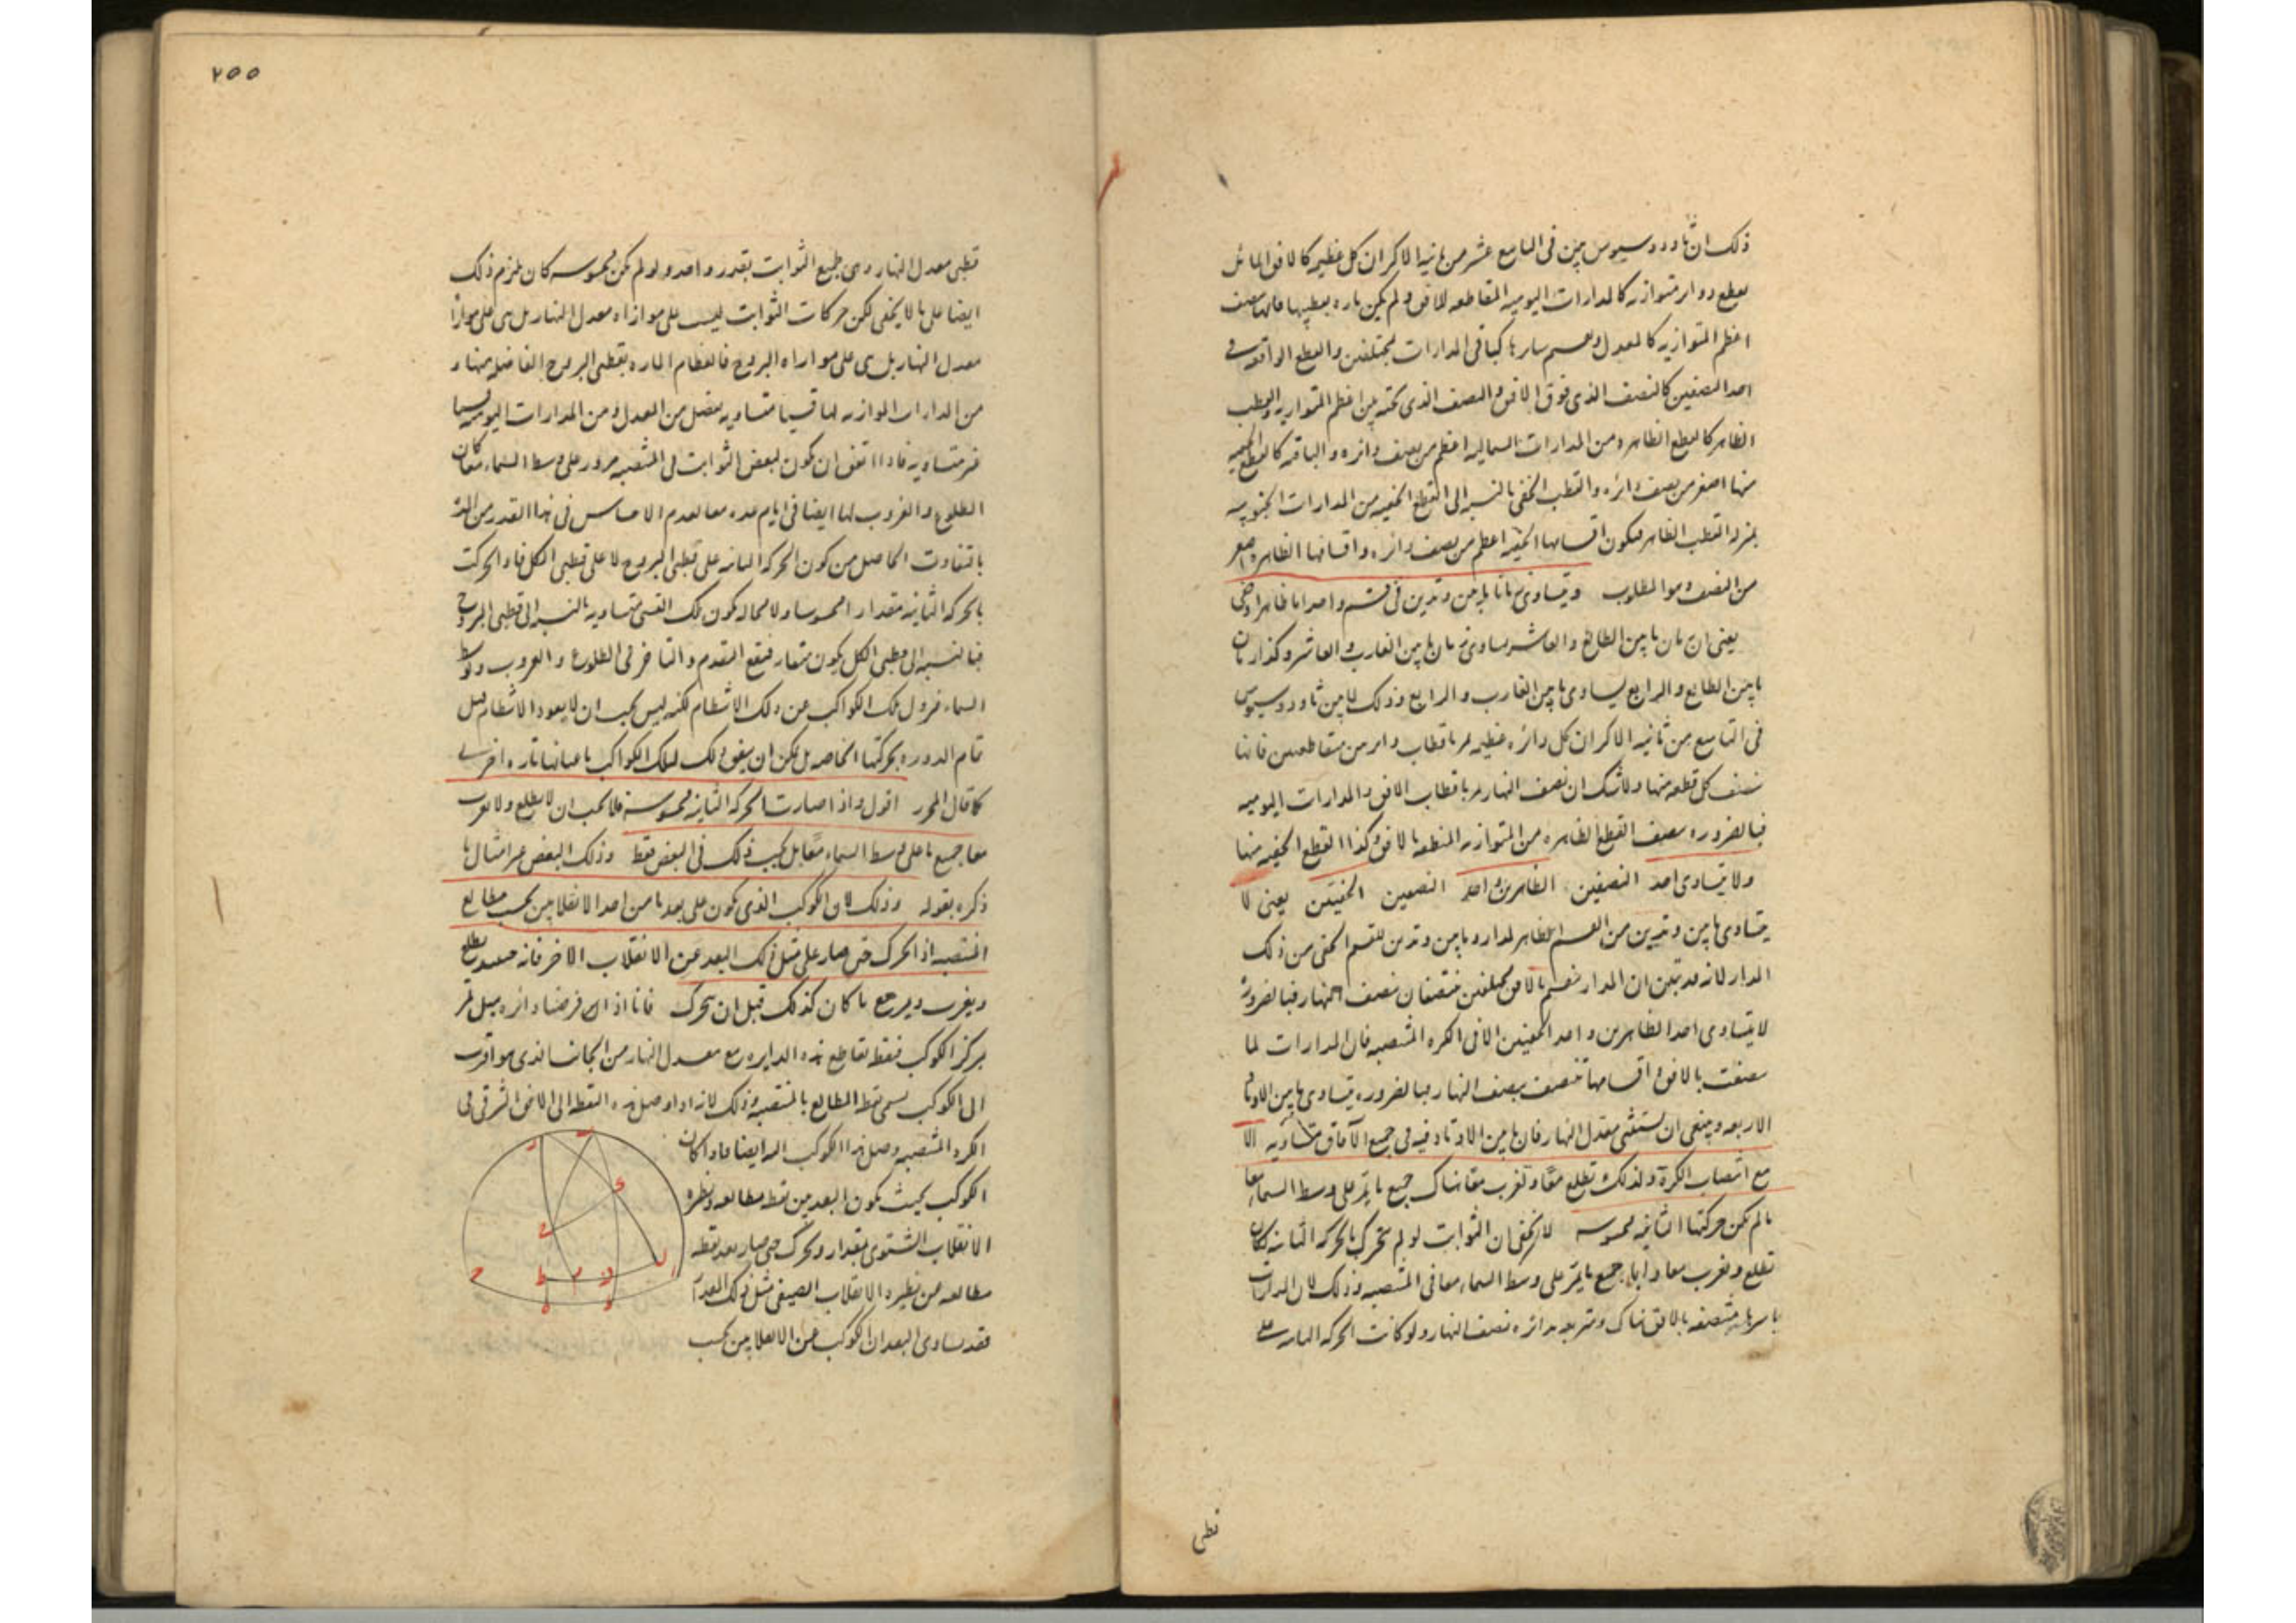 ذلك ان ثاودوسيوس بين فى التاسع عشر من ثانية الاكر ان كل عظيمة كالافق المائل
يقطع دواير متوازية كالمدارات اليومية المتقاطعة للافق ولم يكن ماره بقطبيها فانها تنصف
اعظم المتوازية كالمعدل وتقسم سايرها كباقى المدارات بمختلفين والقطع الواقعة فى
احد النصفين كالنصف الذى فوق الافق والنصف الذى تحته بين اعظم المتوازية والقطب
الظاهر كالقطع الظاهره من المدارات الشمالية اعظم من نصف دائره والباقيه كالقطع الخفيه
منها اصغر من نصف دائره والقطب الخفى بالنسبة الى القطع الخفيه من المدارات الجنوبيه
بمنزله القطب الظاهر فيكون اقسامها الخفيه اعظم من نصف دائره واقسامها الظاهره اصغر
من النصف وهو المطلوب ويتساوى زمانا ما بين وتدين فى قسم واحد اما ظاهرا وخفى
يعنى ان زمان ما بين الطالع والعاشر يساوى زمان ما بين الغارب والعاشر وكذا زمان
ما بين الطالع والرابع يساوى ما بين الغارب والرابع وذلك لما بين ثاودوسيوس
فى التاسع من ثانية الاكر ان كل دائره عظيمه تمر باقطاب دوائر متقاطعين فانها
تنصف كل قطعه منها ولا شك ان نصف النهار مر باقطاب الافق والمدارات اليوميه
فبالضروره ينصف القطع الظاهره من المتوازيه المتقطعة بالافق وكذا القطع الخفيه منها
ولا يتساوى احد النصفين الظاهرين واحد النصفين الخفيين يعنى لا
يتساوى ما بين وتدين من القسم الظاهر لمدار وما بين وتدين للقسم الخفى من ذلك
المدار لانه قد تبين ان المدار منقسم بالافق بمختلفين منتصفان بنصف النهار فبالضرورة
لا يتساوى احد الظاهرين واحد الخفيين الا فى الكره المنتصبه فان المدارات لما
تنصفت بالافق واقسامها تنتصف بنصف النهار فبالضروره يتساوى ما بين الاوتاد
الاربعه وينبغى ان يستثنى معدل النهار فان ما بين الاوتاد فيه فى جميع الآفاق متساويه الا
مع انتصاب الكرة ولذلك تطلع معًا وتغرب معًا هناك جميع ما يمر على وسط السماء معا
ما لم تكن حركتها الثانيه محسوسه لا يخفى ان الثوابت لو لم تتحرك بالحركه الثانيه لكان
تطلع وتغرب معا دايما جميع ما يمر على وسط السماء معا فى المنتصبه وذلك لان المدارات
باسرها منتصفه بالافق هناك ومتربعه بدائره نصف النهار ولو كانت الحركه الثانيه على
قطبى
٢٥٥
قطبى معدل النهار وهى بجميع الثوابت بقدر واحد ولو لم تكن محسوسه كان يلزم ذلك
ايضا على ما لا يخفى لكن حركات الثوابت ليست على موازاه معدل النهار بل هى على موازاة
معدل النهار بل هى على موازاه البروج فالعظام الماره بقطبى البروج الفاصله منها و
من المدارات الموازيه لها قسيا متشاويه تفصل من المعدل ومن المدارات اليوميه قسيا
غير متساويه فاذا اتفق ان يكون لبعض الثوابت فى المنتصبه مرور على وسط السماء معا كان
الطلوع والغروب لها ايضا فى ايام عده معا لعدم الاحساس فى هذا القدر من المدة
بالتفاوت الحاصل من كون الحركه الثانيه على قطبى البروج لا على قطبى الكل فاذا تحركت
بالحركه الثانيه مقدارا محسوسا ولا محاله يكون تلك القسى متساويه بالنسبه الى قطبى البروج
فبالنسبه الى قطبى الكل يكون متفاوته فيقع التقدم والتاخر فى الطلوع والغروب وتوسط
السماء فيزول تلك الكواكب عن ذلك الانتظام لكنه ليس يجب ان لا يعود الانتظام قبل
تمام الدوره بحركتها الخاصه بل يمكن ان يتفق ذلك لتلك الكواكب باعيانها تاره اخرى
كما قال المحرر اقول واذا صارت الحركه الثانيه محسوسة فلا يجب ان لا يطلع ولا يغرب
معا جميع ما على وسط السماء معًا بل يجب ذلك فى البعض فقط وذلك البعض هو امثال ما
ذكره بقوله وذلك لان الكوكب الذى يكون على بعد ما من احد الانقلابين بحسب مطالع
المنتصبه اذا تحرك حتى صار على مثل ذلك البعد عن الانقلاب الاخر فانه حينئذ يطلع
ويغرب ويرجع ما كان كذلك قبل ان يتحرك فانا اذا فرضنا دائره ميل تمر
بمركز الكوكب فنقطه تقاطع هذه الدايره مع معدل النهار من الجانب الذى هو اقرب
الى الكوكب تسمى نقطه المطالع بالمنتصبه وذلك لانه اذا وصل هذه النقطه الى الافق الشرقى فى
الكره المنتصبه وصل هذا الكوكب اليه ايضا واذا كان
الكوكب بحيث يكون البعد بين نقطه مطالعه ونظيره
الانقلاب الشتوى بمقدار وتحرك حتى صار بعد نقطه
مطالعه من نظيره الانقلاب الصيفى مثل ذلك المقدار
فقد تساوى البعدان للكوكب من الانقلابين بحسب